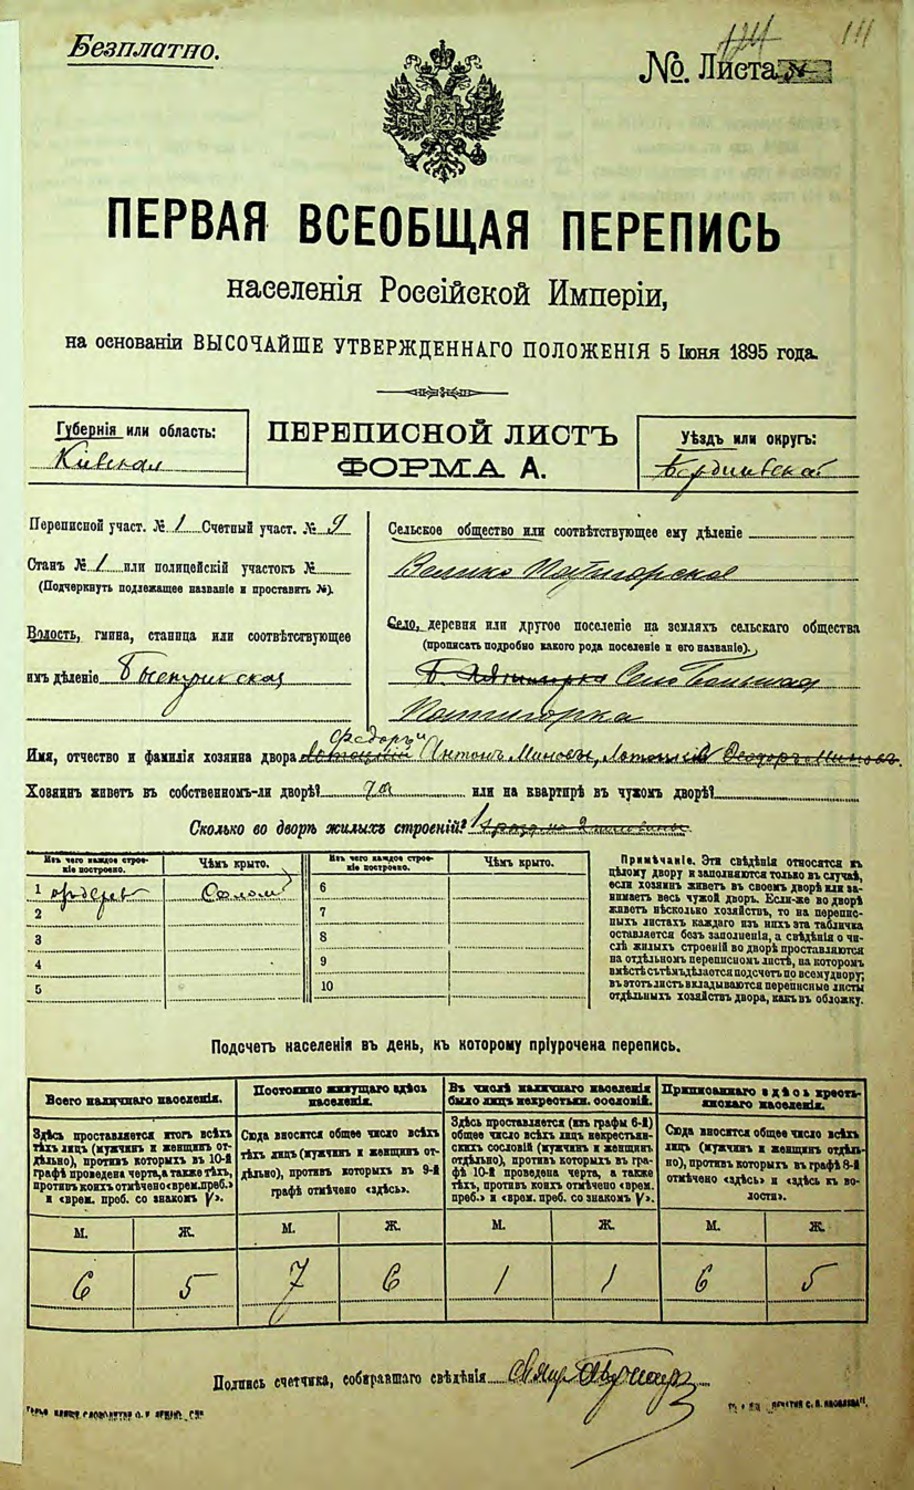 Безплатно.
№. Листа
ПЕРВАЯ ВСЕОБЩАЯ ПЕРЕПИСЬ
населенія Россійской Имперіи,
на основаніи ВЫСОЧАЙШЕ УТВЕРЖДЕННАГО ПОЛОЖЕНІЯ 5 Іюня 1895 года.
Губернія или область:
Кіевская
ПЕРЕПИСНОЙ ЛИСТЪ
ФОРМА А.
Уѣздъ или округъ:
Бердичевскій
Переписной участ. № 1 Счетный участ. № 9
Станъ № 1 или полицейскій участокъ №
(Подчеркнуть подлежащее названіе и проставить №).
Волость, гмина, станица или соотвѣтствующее
имъ дѣленіе Быстрикская
Сельское общество или соотвѣтствующее ему дѣленіе
Велико Пятигорское
Село, деревня или другое поселеніе на земляхъ сельскаго общества
(прописать подробно какого рода поселеніе и его названіе).
Село Большая
Пятигорка
Имя, отчество и фамилія хозяина двора Антонъ
Хозяинъ живетъ въ собственномъ-ли дворѣ? да или на квартирѣ въ чужомъ дворѣ?
Сколько во дворѣ жилыхъ строеній? 1
Изъ чего каждое строеніе построено.
Чѣмъ крыто.
Изъ чего каждое строеніе построено.
Чѣмъ крыто.
1 Солом
2
3
4
5
6
7
8
9
10
Примѣчаніе. Эти свѣдѣнія относятся къ
цѣлому двору и заполняются только въ случаѣ,
если хозяинъ живетъ въ своемъ дворѣ или за-
нимаетъ весь чужой дворъ. Если-же во дворѣ
живетъ нѣсколько хозяйствъ, то на перепис-
ныхъ листахъ каждаго изъ нихъ эта табличка
оставляется безъ заполненія, а свѣдѣнія о чи-
слѣ жилыхъ строеній во дворѣ проставляются
на отдѣльномъ переписномъ листѣ, на которомъ
вмѣстѣ съ тѣмъ дѣлается подсчетъ по всему двору;
въ этотъ листъ вкладываются переписные листы
отдѣльныхъ хозяйствъ двора, какъ въ обложку.
Подсчетъ населенія въ день, къ которому пріурочена перепись.
Всего наличнаго населенія.
Здѣсь проставляется итогъ всѣхъ
тѣхъ лицъ (мужчинъ и женщинъ от-
дѣльно), противъ которыхъ въ 10-й
графѣ проведена черта, а также тѣхъ,
противъ коихъ отмѣчено «врем. преб.»
и «врем. проб. со знакомъ V».
Постоянно живущаго здѣсь
населенія.
Сюда вносится общее число всѣхъ
тѣхъ лицъ (мужчинъ и женщинъ от-
дѣльно), противъ которыхъ въ 9-й
графѣ отмѣчено «здѣсь».
Въ числѣ наличнаго населенія
было лицъ некрестьян. сословій.
Здѣсь проставляется (изъ графы 6-й)
общее число всѣхъ лицъ некрестьян-
скихъ сословій (мужчинъ и женщинъ
отдѣльно), противъ которыхъ въ гра-
фѣ 10-й проведена черта, а также
тѣхъ, противъ коихъ отмѣчено «врем.
преб.» и «врем. проб. со знакомъ V».
Приписаннаго здѣсь кресть-
янскаго населенія.
Сюда вносится общее число всѣхъ
лицъ (мужчинъ и женщинъ отдѣль-
но), противъ которыхъ въ графѣ 8-й
отмѣчено «здѣсь» и «здѣсь къ во-
лости».
М. Ж. М. Ж. М. Ж. М. Ж.
6 5 7 6 1 1 6 5
Подпись счетчика, собиравшаго свѣдѣнія